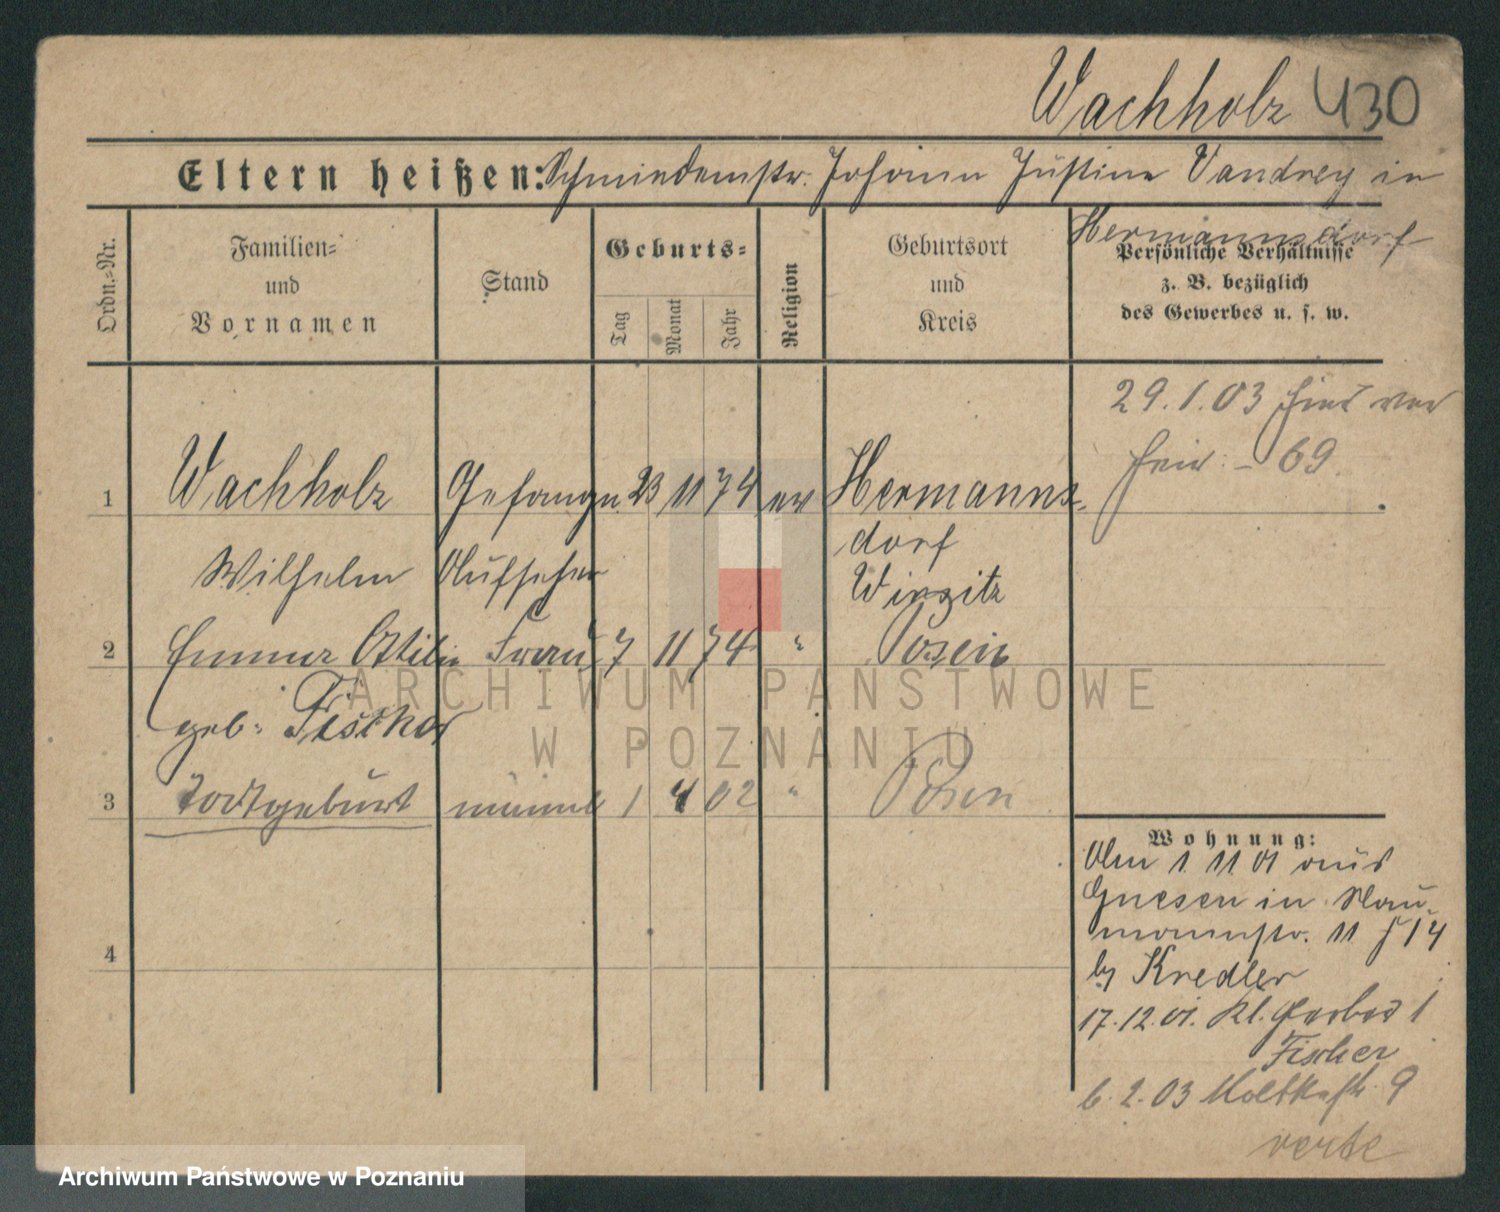 Wachholz 430
Eltern heißen: Schmiedemstr. Johann Justine Vandrey in
Hermannsdorf
Ordn.-Nr.
Familien-
und
Vornamen
Stand
Geburts-
Tag
Monat
Jahr
Religion
Geburtsort
und
Kreis
Persönliche Verhältnisse
z. B. bezüglich
des Gewerbes u. s. w.
29.1.03
69.
1 Wachholz Gefangn. 23 11 74 ev Hermanns-
dorf
Wilhelm Aufseher Wirsitz
2 Emma Ottilie Frau 7 11 74 " Posen
geb: Fischer
3 Todtgeburt männl 1 4 02 " Posen
4
Wohnung:
Am 1. 11. 01 aus
Gnesen in Nau-
mannstr. 11 J 14
by Kredler
17.12.01. Kl. Gerber 1
Fischer
6.2.03 Moltkestr. 9
verte
ARCHIWUM PAŃSTWOWE
W POZNANIU
Archiwum Państwowe w Poznaniu